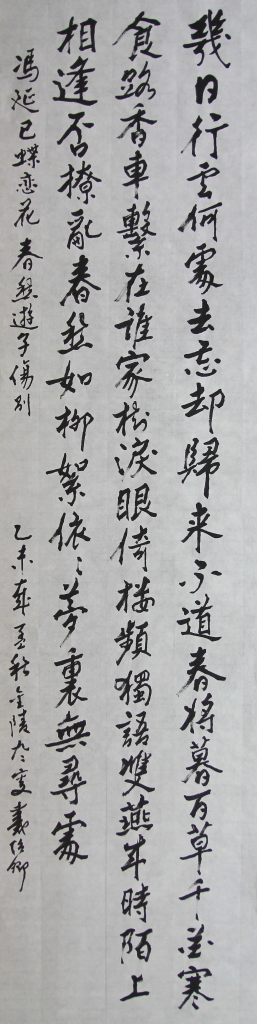 幾日行云何處去忘却歸来不道春將暮百草千花寒
食路香車繫在誰家樹淚眼倚楼頻獨語雙燕来時陌上
相逢否撩亂春愁如柳絮依〻夢裏無尋處
馮延巳蝶恋花 春愁遊子傷别 乙未歲孟秋金陵